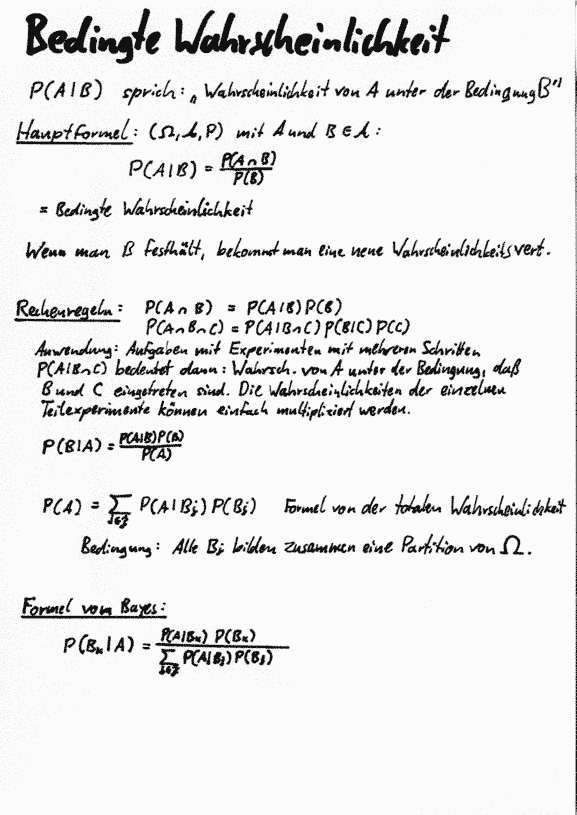 Bedingte Wahrscheinlichkeit
P(A|B) sprich: „Wahrscheinlichkeit von A unter der Bedingung B"
Hauptformel: (Ω, A, P) mit A und B ∈ A:
P(A|B) = P(A∩B) / P(B)
= Bedingte Wahrscheinlichkeit
Wenn man B festhält, bekommt man eine neue Wahrscheinlichkeitsvert.
Rechenregeln: P(A∩B) = P(A|B) P(B)
P(A∩B∩C) = P(A|B∩C) P(B|C) P(C)
Anwendung: Aufgaben mit Experimenten mit mehreren Schritten
P(A|B∩C) bedeutet dann: Wahrsch. von A unter der Bedingung, daß
B und C eingetreten sind. Die Wahrscheinlichkeiten der einzelnen
Teilexperimente können einfach multipliziert werden.
P(B|A) = P(A|B)P(B) / P(A)
P(A) = ∑ j∈J P(A|Bj) P(Bj) Formel von der totalen Wahrscheinlichkeit
Bedingung: Alle Bj bilden zusammen eine Partition von Ω.
Formel vom Bayes:
P(Bk|A) = P(A|Bk) P(Bk) / ∑ j∈J P(A|Bj) P(Bj)